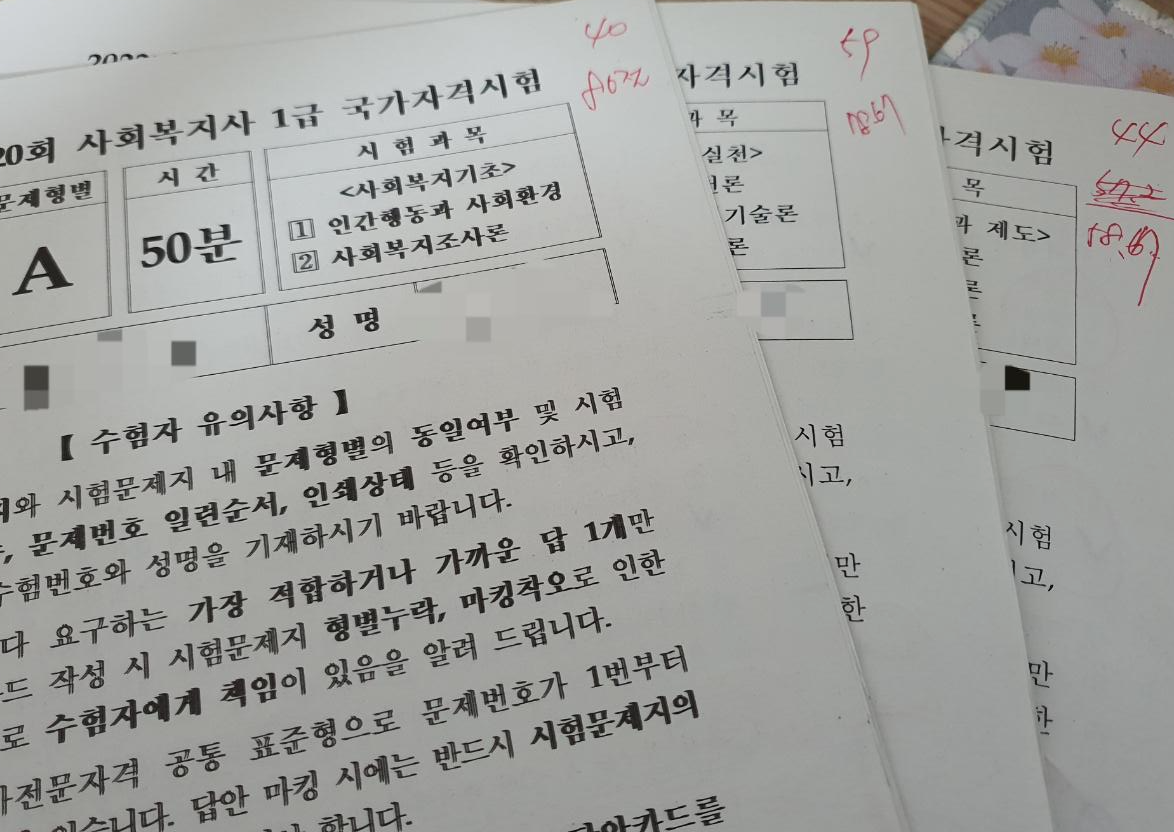 20회 사회복지사 1급 국가자격시험
문제형별
시 간
시 험 과 목
A
50분
<사회복지기초>
1 인간행동과 사회환경
2 사회복지조사론
성 명
【 수험자 유의사항 】
시험문제지 내 문제형별의 동일여부 및 시험
문제번호 일련순서, 인쇄상태 등을 확인하시고,
수험번호와 성명을 기재하시기 바랍니다.
다 요구하는 가장 적합하거나 가까운 답 1개만
드 작성 시 시험문제지 형별누락, 마킹착오로 인한
로 수험자에게 책임이 있음을 알려 드립니다.
가전문자격 공통 표준형으로 문제번호가 1번부터
있습니다. 답안 마킹 시에는 반드시 시험문제지의
합니다.
답안카드를
40
80%
자격시험
과 목
실천>
기술론
론
시험
시고,
만
한
59
78.67
격시험
목
과 제도>
론
론
시험
고,
만
한
44
58.67